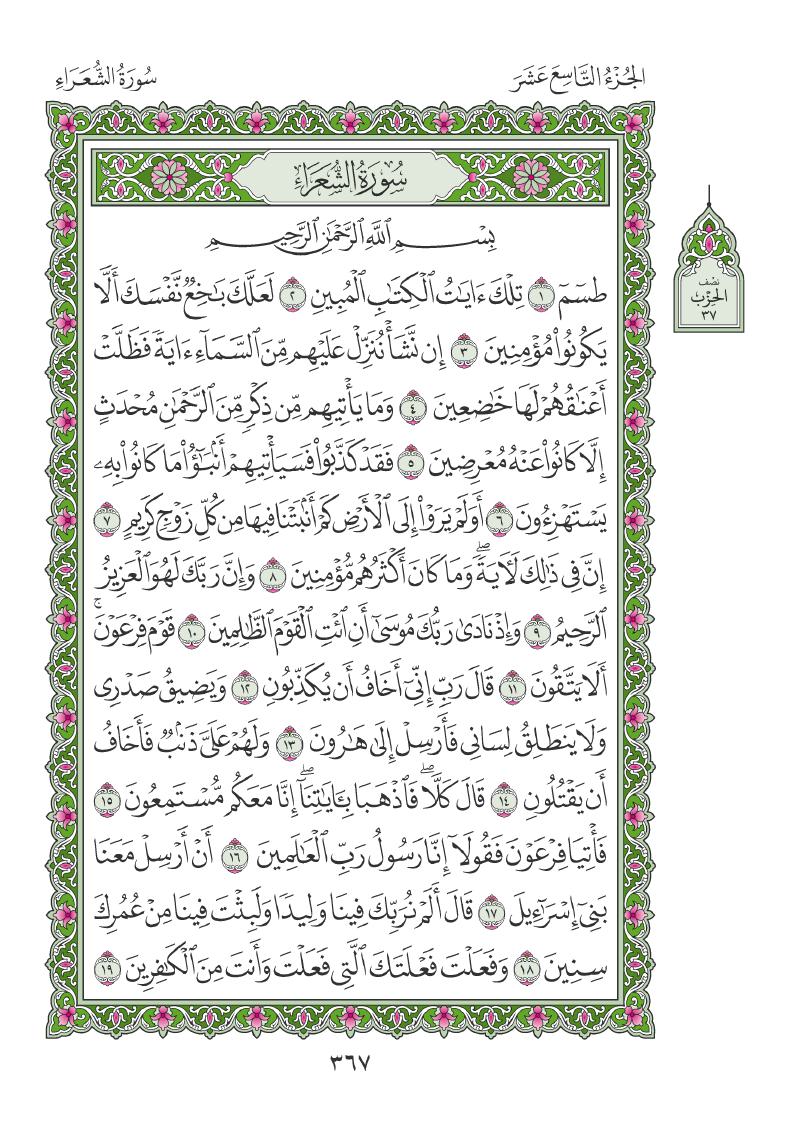 الجُزْءُ التَّاسِعَ عَشَرَ
سُورَةُ الشُّعَرَاءِ
سُورَةُ الشُّعَرَاءِ
نِصْف
الحِزْب
٣٧
بِسْمِ ٱللَّهِ ٱلرَّحْمَٰنِ ٱلرَّحِيمِ
طسٓمٓ ١ تِلْكَ ءَايَٰتُ ٱلْكِتَٰبِ ٱلْمُبِينِ ٢ لَعَلَّكَ بَٰخِعٌ نَّفْسَكَ أَلَّا
يَكُونُوا۟ مُؤْمِنِينَ ٣ إِن نَّشَأْ نُنَزِّلْ عَلَيْهِم مِّنَ ٱلسَّمَآءِ ءَايَةً فَظَلَّتْ
أَعْنَٰقُهُمْ لَهَا خَٰضِعِينَ ٤ وَمَا يَأْتِيهِم مِّن ذِكْرٍ مِّنَ ٱلرَّحْمَٰنِ مُحْدَثٍ
إِلَّا كَانُوا۟ عَنْهُ مُعْرِضِينَ ٥ فَقَدْ كَذَّبُوا۟ فَسَيَأْتِيهِمْ أَنۢبَٰٓؤُا۟ مَا كَانُوا۟ بِهِۦ
يَسْتَهْزِءُونَ ٦ أَوَلَمْ يَرَوْا۟ إِلَى ٱلْأَرْضِ كَمْ أَنۢبَتْنَا فِيهَا مِن كُلِّ زَوْجٍ كَرِيمٍ ٧
إِنَّ فِى ذَٰلِكَ لَءَايَةًۖ وَمَا كَانَ أَكْثَرُهُم مُّؤْمِنِينَ ٨ وَإِنَّ رَبَّكَ لَهُوَ ٱلْعَزِيزُ
ٱلرَّحِيمُ ٩ وَإِذْ نَادَىٰ رَبُّكَ مُوسَىٰٓ أَنِ ٱئْتِ ٱلْقَوْمَ ٱلظَّٰلِمِينَ ١٠ قَوْمَ فِرْعَوْنَۚ
أَلَا يَتَّقُونَ ١١ قَالَ رَبِّ إِنِّىٓ أَخَافُ أَن يُكَذِّبُونِ ١٢ وَيَضِيقُ صَدْرِى
وَلَا يَنطَلِقُ لِسَانِى فَأَرْسِلْ إِلَىٰ هَٰرُونَ ١٣ وَلَهُمْ عَلَىَّ ذَنۢبٌ فَأَخَافُ
أَن يَقْتُلُونِ ١٤ قَالَ كَلَّاۖ فَٱذْهَبَا بِـَٔايَٰتِنَآۖ إِنَّا مَعَكُم مُّسْتَمِعُونَ ١٥
فَأْتِيَا فِرْعَوْنَ فَقُولَآ إِنَّا رَسُولُ رَبِّ ٱلْعَٰلَمِينَ ١٦ أَنْ أَرْسِلْ مَعَنَا
بَنِىٓ إِسْرَٰٓءِيلَ ١٧ قَالَ أَلَمْ نُرَبِّكَ فِينَا وَلِيدًا وَلَبِثْتَ فِينَا مِنْ عُمُرِكَ
سِنِينَ ١٨ وَفَعَلْتَ فَعْلَتَكَ ٱلَّتِى فَعَلْتَ وَأَنتَ مِنَ ٱلْكَٰفِرِينَ ١٩
٣٦٧